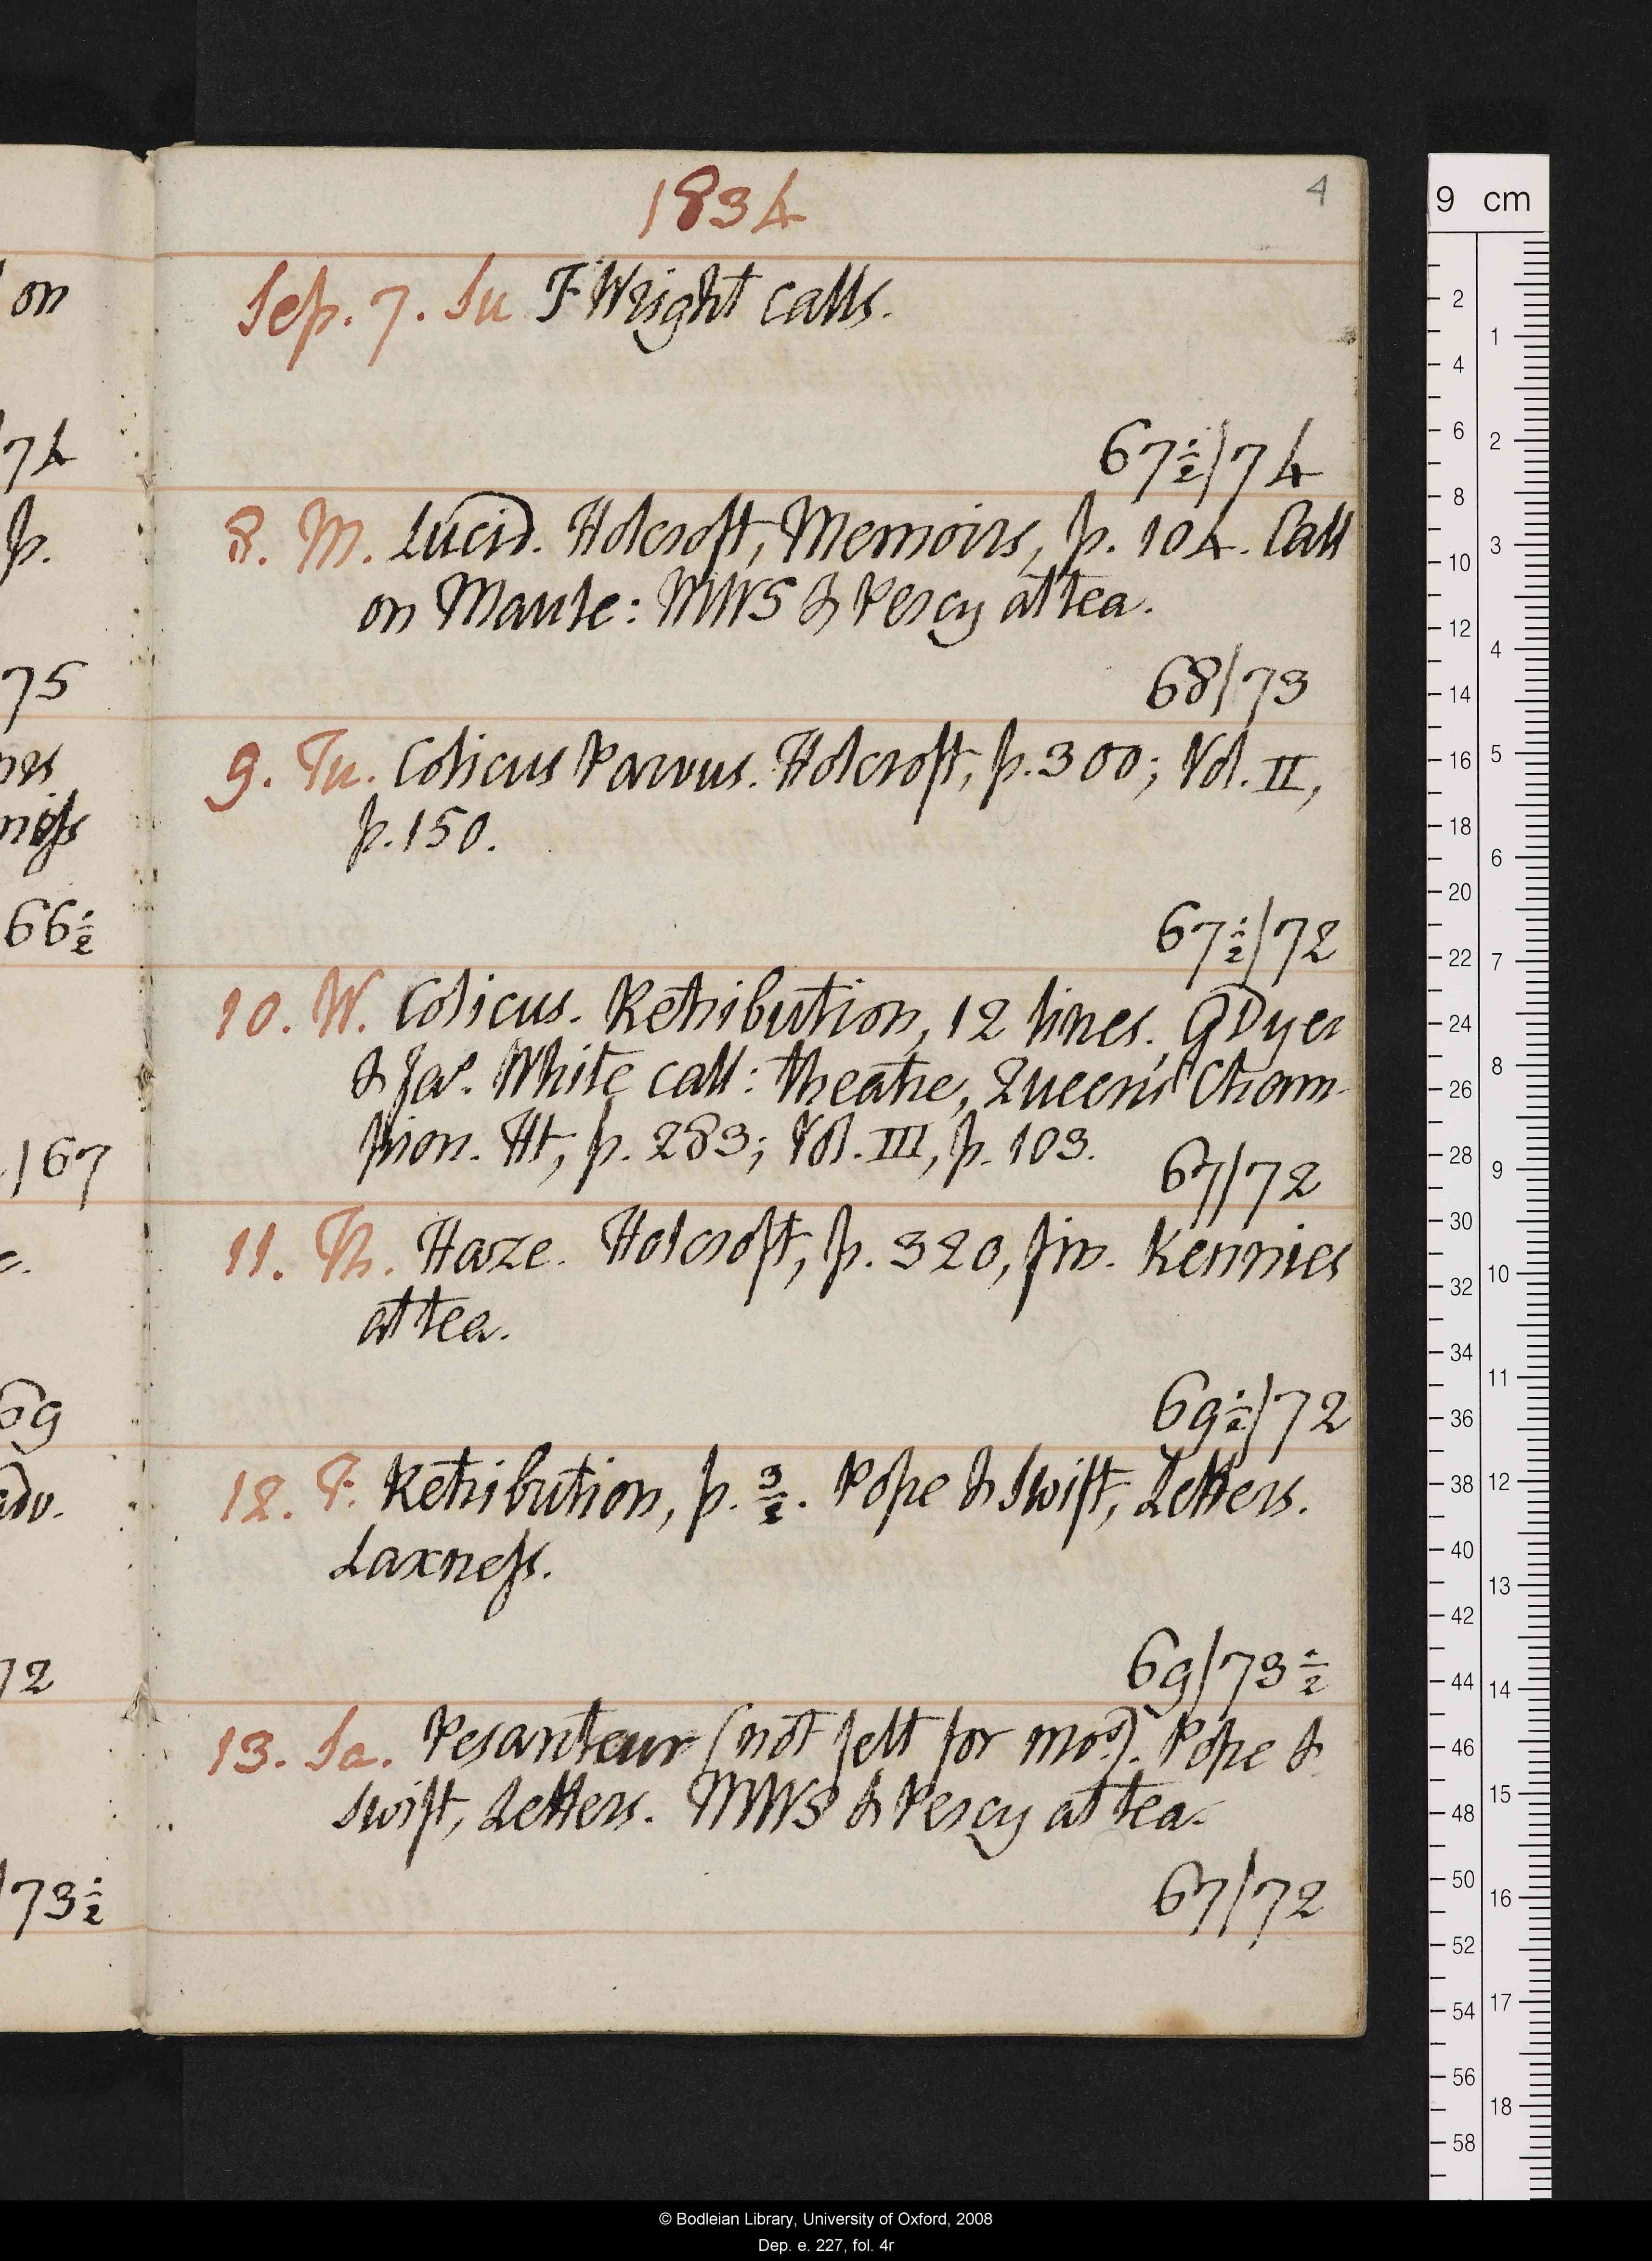 1834
4
Sep. 7. Su F Wright calls.
67½/74
8. M. Lucid. Holcroft, Memoirs, p. 104. Call
on Maule: MWS & Percy at tea.
68/73
9. Tu. Colicus Parvus. Holcroft, p. 300; Vol. II,
p. 150.
67½/72
10. W. Colicus. Retribution, 12 lines. G Dyer
& Jas. White call: theatre, Queen's Cham-
pion. Ht, p. 283; Vol. III, p. 103.
67/72
11. Th. Haze. Holcroft, p. 320, fin. Kennies
at tea.
69½/72
12. F. Retribution, p. 3/2. Pope & Swift, Letters.
Laxness.
69/73½
13. Sa. Pesanteur (not felt for mos). Pope &
Swift, Letters. MWS & Percy at tea.
67/72
on
74
p.
75
66½
167
69
adv.
72
73½
9 cm
2
4
6
8
10
12
14
16
18
20
22
24
26
28
30
32
34
36
38
40
42
44
46
48
50
52
54
56
58
1
2
3
4
5
6
7
8
9
10
11
12
13
14
15
16
17
18
© Bodleian Library, University of Oxford, 2008
Dep. e. 227, fol. 4r